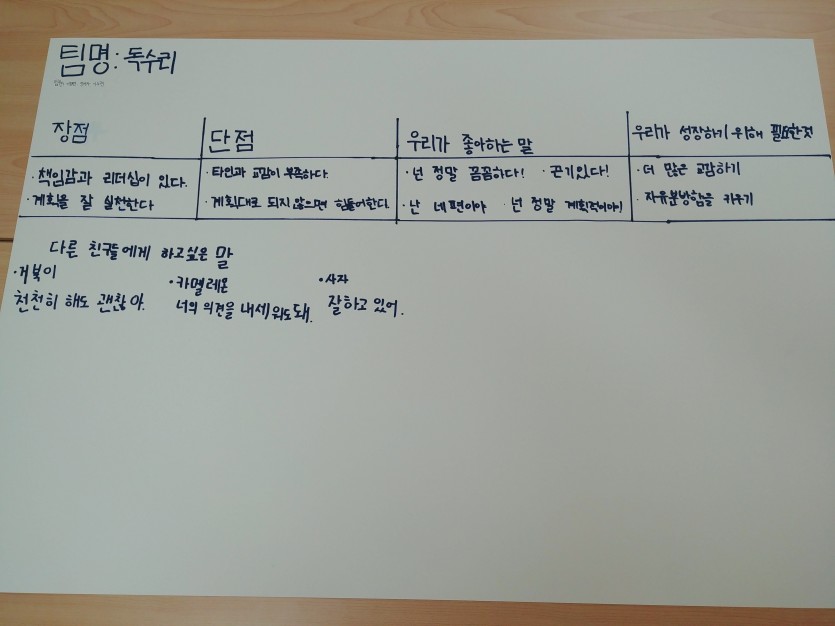 팀명: 독수리
장점
단점
우리가 좋아하는 말
우리가 성장하기 위해 필요한것
· 책임감과 리더십이 있다.
· 계획을 잘 실천한다
· 타인과 교감이 부족하다.
· 계획대로 되지 않으면 힘들어한다.
· 넌 정말 꼼꼼하다! · 끈기있다!
· 난 네편이야 넌 정말 계획적이야!
· 더 많은 교감하기
· 자유분방함을 키우기
다른 친구들에게 하고싶은 말
· 거북이
천천히 해도 괜찮아.
· 카멜레온
너의 의견을 내세워도돼.
· 사자
잘하고 있어.